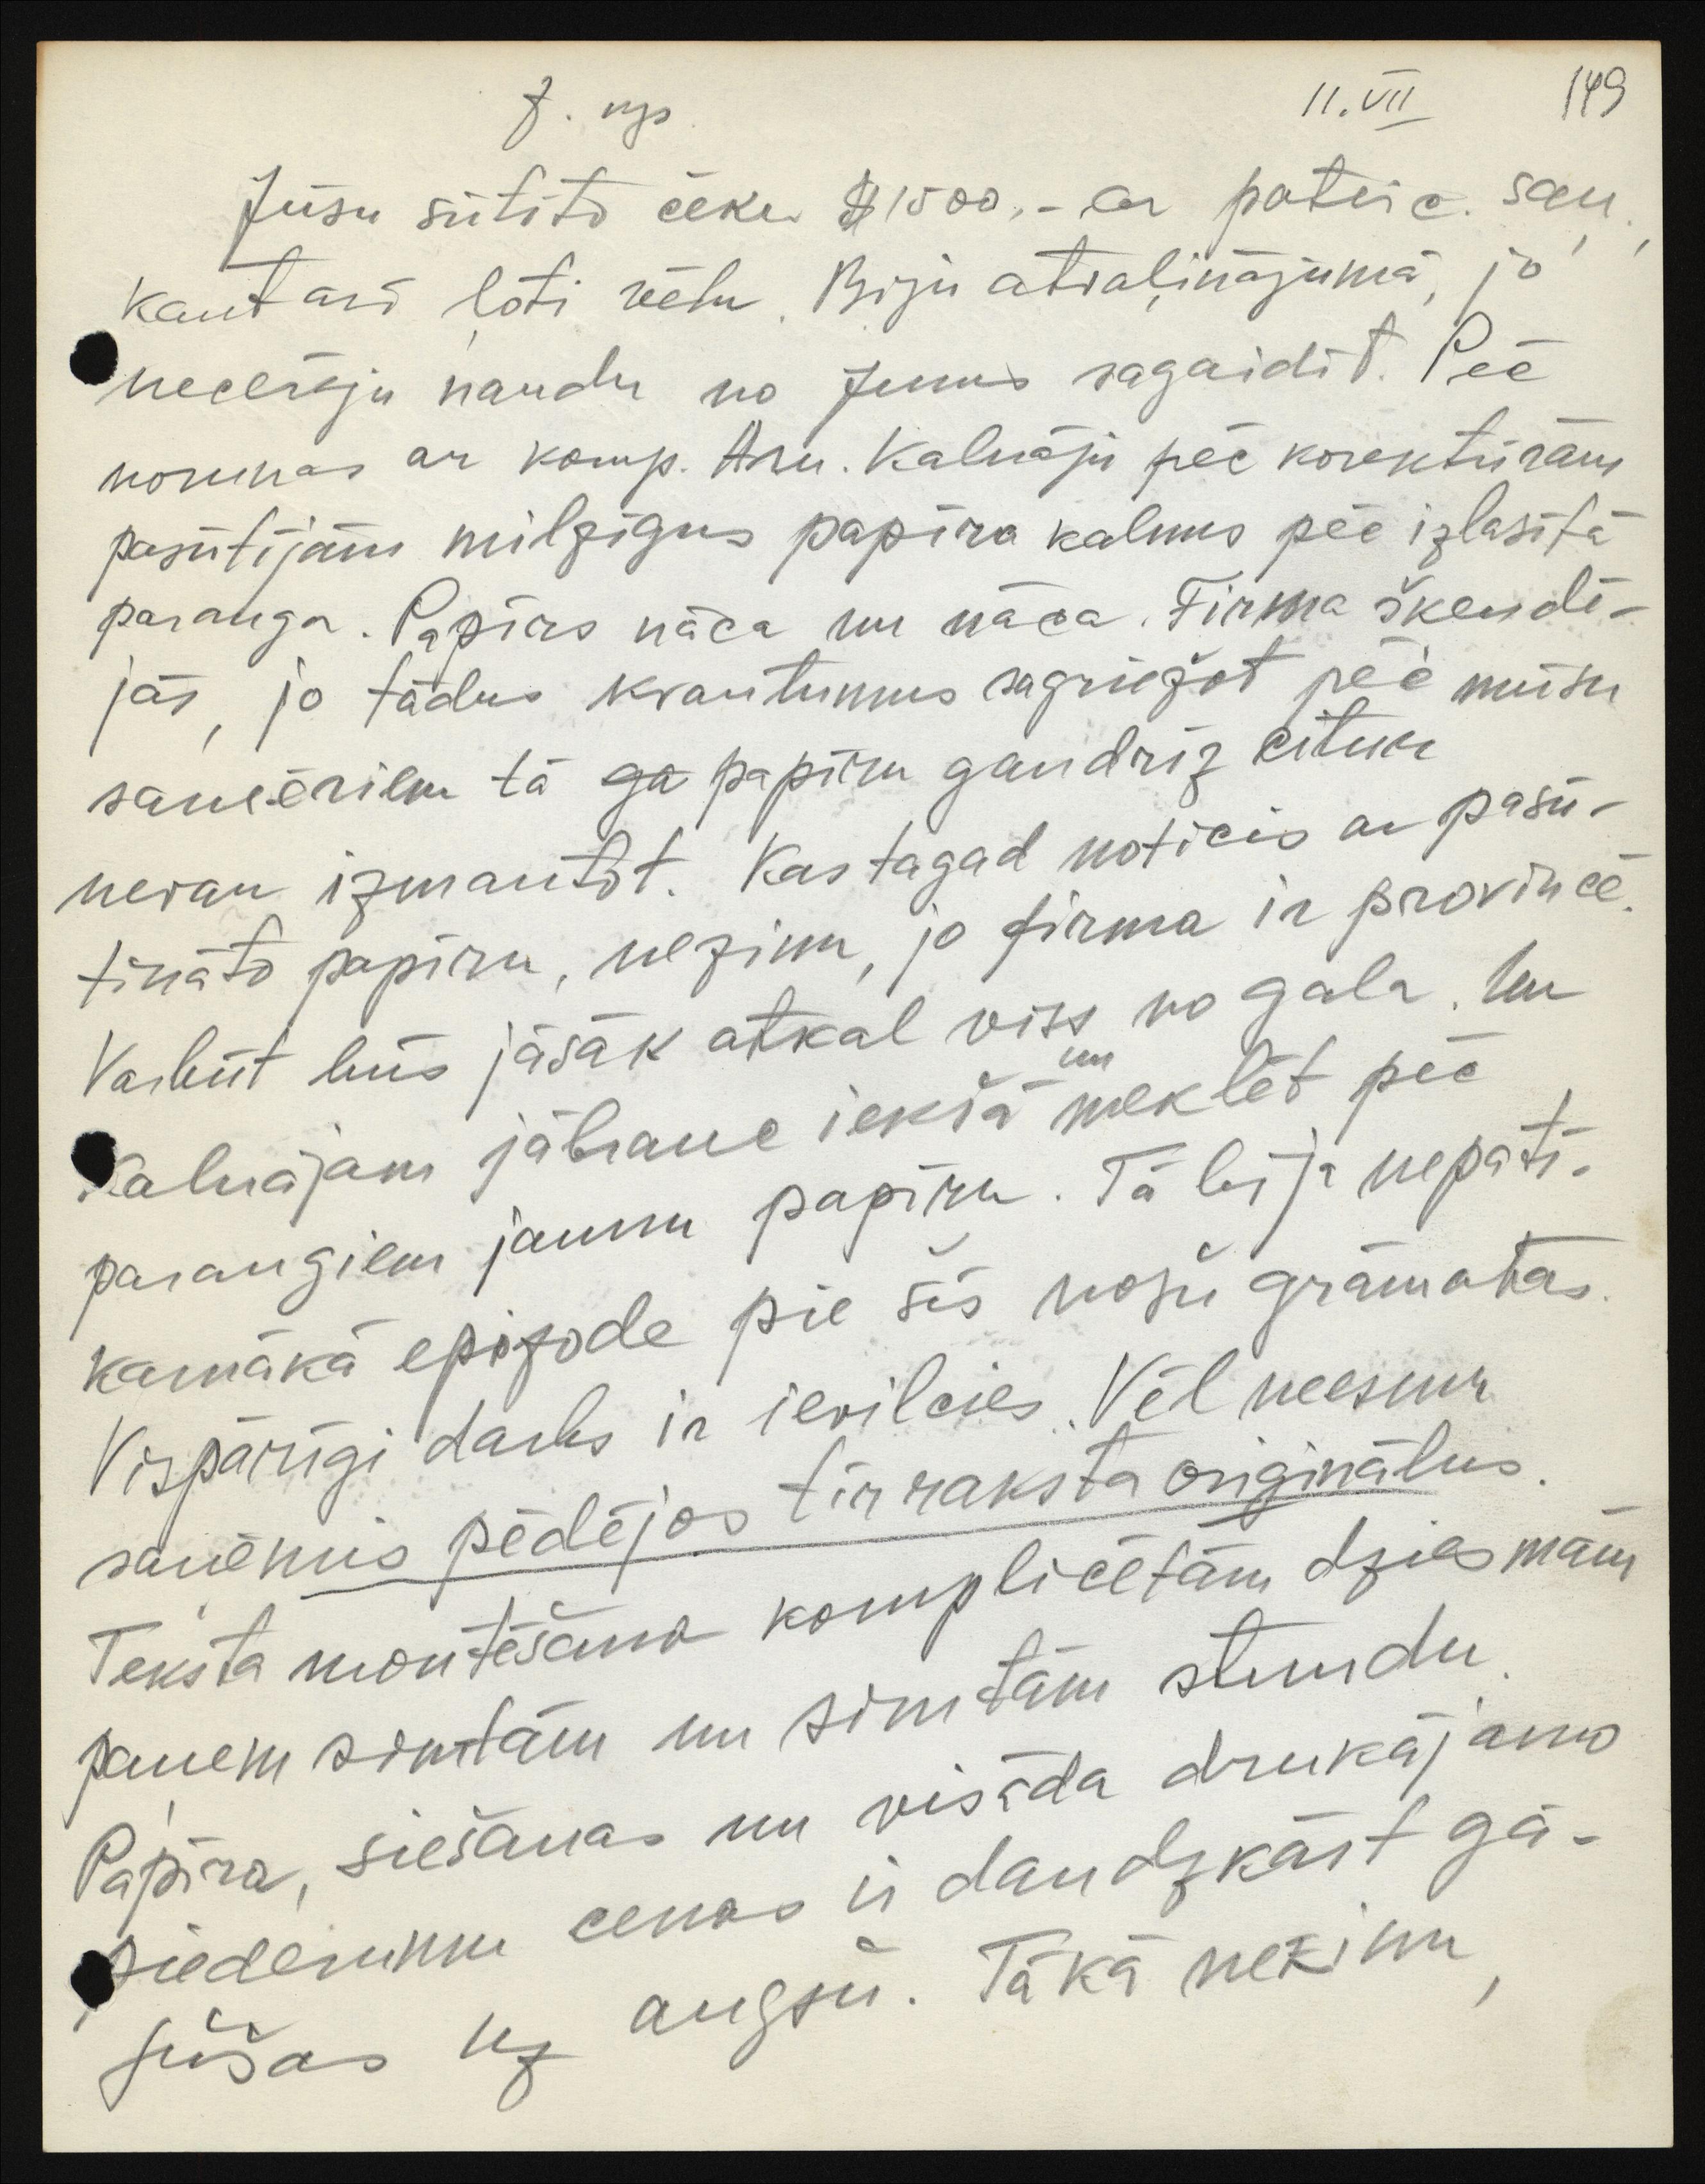 J. kgs 11.VII 149
Jūsu sūtīto čeku $ 1500,- ar pateic. saņ.,
kaut arī ļoti vēlu. Biju atvaļinājumā, jo
necerēju naudu no Jums sagaidīt. Pēc
normas ar komp. Arn. Kalnāju pēc korektūrām
pasūtījām milzīgus papīra kalnus pēc izlasītā
parauga. Papīrs nāca un nāca. Firma škendē-
jās, jo tādus kvantumus sagriežot pēc mūsu
saņēmilem tā ga papīru gandrīz citur
nevar izmantot. Kas tagad noticis ar pasū-
tināto papīru, nezinu, jo firma ir provincē.
Varbūt būs jāsāk atkal viss no gala. Un
Kalnājam jābrauc iekšā un meklēt pēc
paraugiem jaunu papīru. Tā bija nepatī-
kamākā epizode pie šīs nošu grāmatas.
Vispārīgi darbs ir ievilcies. Vēl neesmu
saņēmis pēdējos tīrraksta oriģinālus.
Teksta montēšana komplicētām dziesmām
paņem simtām un simtām stundu.
Papīra, siešanas un visāda drukājamo
piederumu cenas ir daudzkārt gā-
jušas uz augšu. Tākā nezinu,